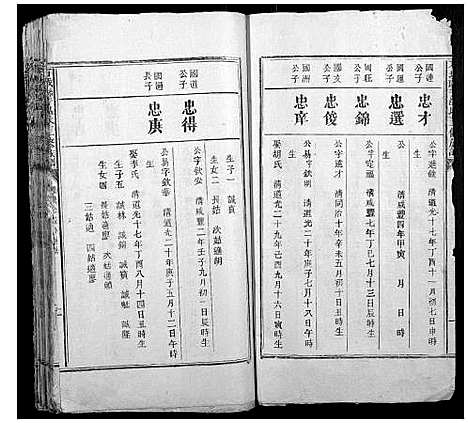 國進
公子
忠才
公字進敏 清道光十七年丁酉十一月初一日辰時生
國通
公子
忠選
清咸豐四年甲寅 月 日 時
國旺
公子
忠錦
公字定福 清咸豐七年丁巳七月十三日辰時生
國文
公子
忠俊
公字遠才 清同治十年辛未五月初十日 時生
國洲
公子
忠庠
公字欽明 清道光二十年庚子七月十八日午時生
娶胡氏 清道光十九年己酉九月十六日寅時生
生子一 誠貴
生女二 長姑 次姑適胡
國道
公子
忠得
公字欽華 清咸豐二年壬子九月初一日辰時生
國通
長子
忠庚
公易字欽常 清道光二十年庚子五月十二日午時
娶李氏 清道光十七年丁酉八月十四日丑時生
生子五 誠林 誠錦 誠寶 誠祉 誠隆
生女四 長姑適廖 次姑適顏
三姑適 四姑適廖